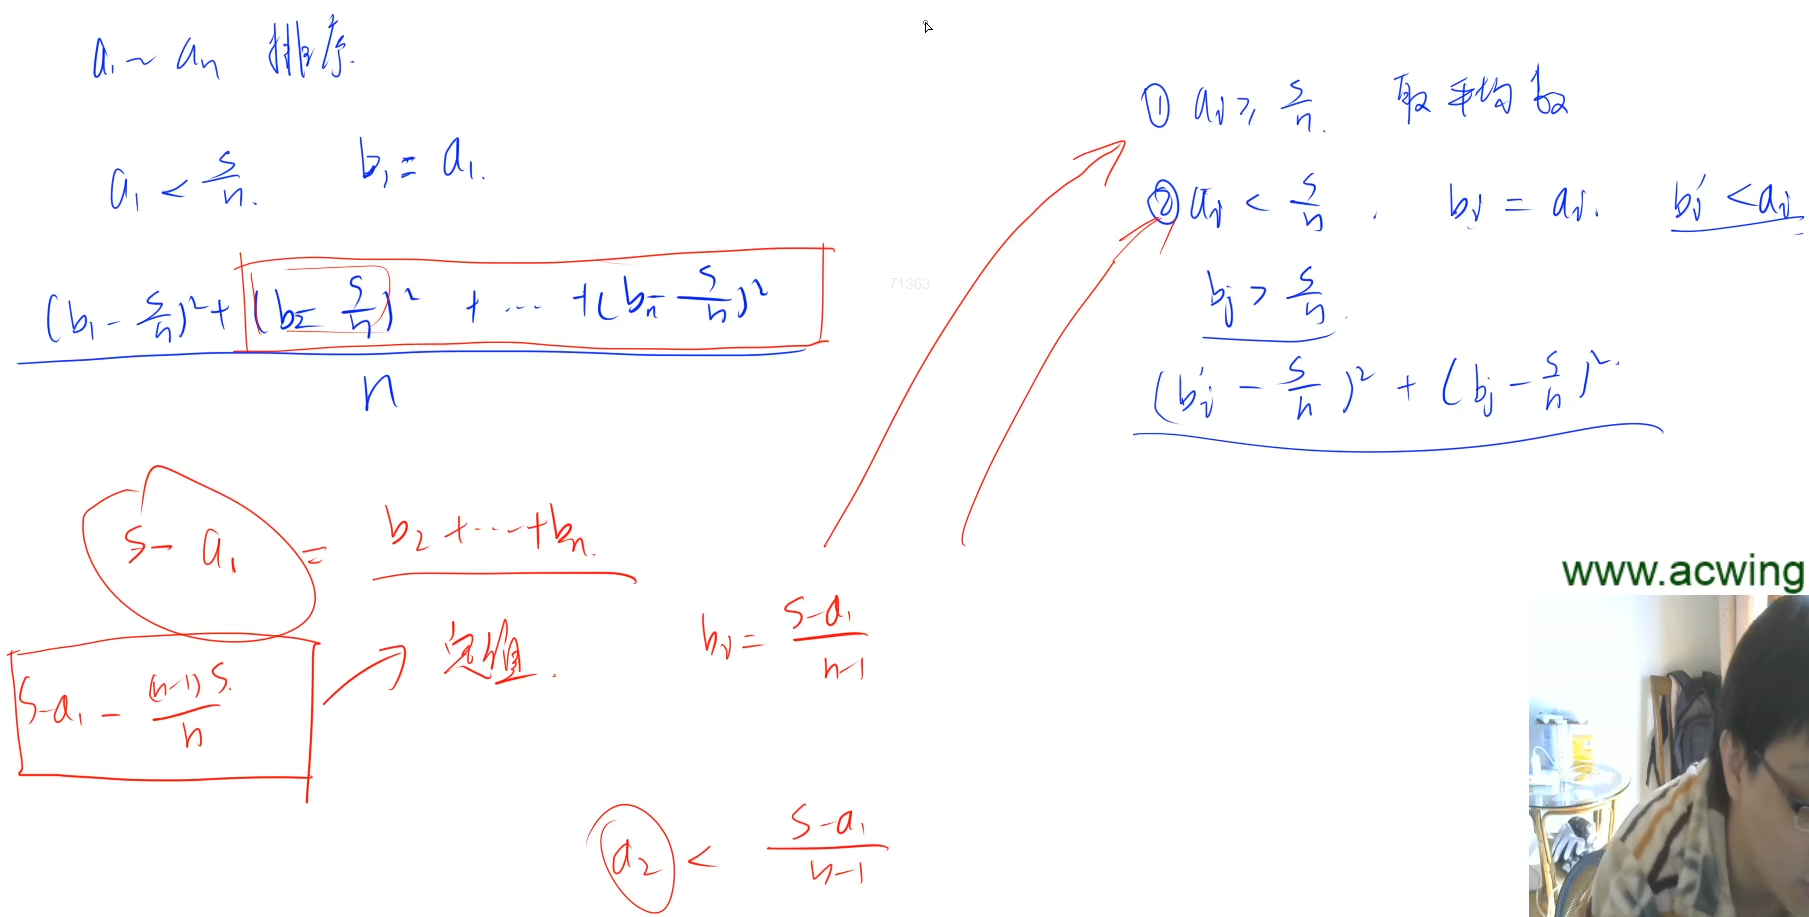 a₁ ~ aₙ 排序.
a₁ < s/n. b₁ = a₁.
((b₁ - s/n)² + (b₂ - s/n)² + ... + (bₙ - s/n)²) / n
s - a₁ = b₂ + ... + bₙ.
s - a₁ - (n-1)s./n 定值.
bᵢ = (s-a₁)/(n-1)
a₂ < (s-a₁)/(n-1)
① aᵢ ≥ s/n. 取平均数
② aᵢ < s/n. bᵢ = aᵢ. bᵢ' < aᵢ
bⱼ > s/n.
(bᵢ' - s/n)² + (bⱼ - s/n)².
71363
www.acwing